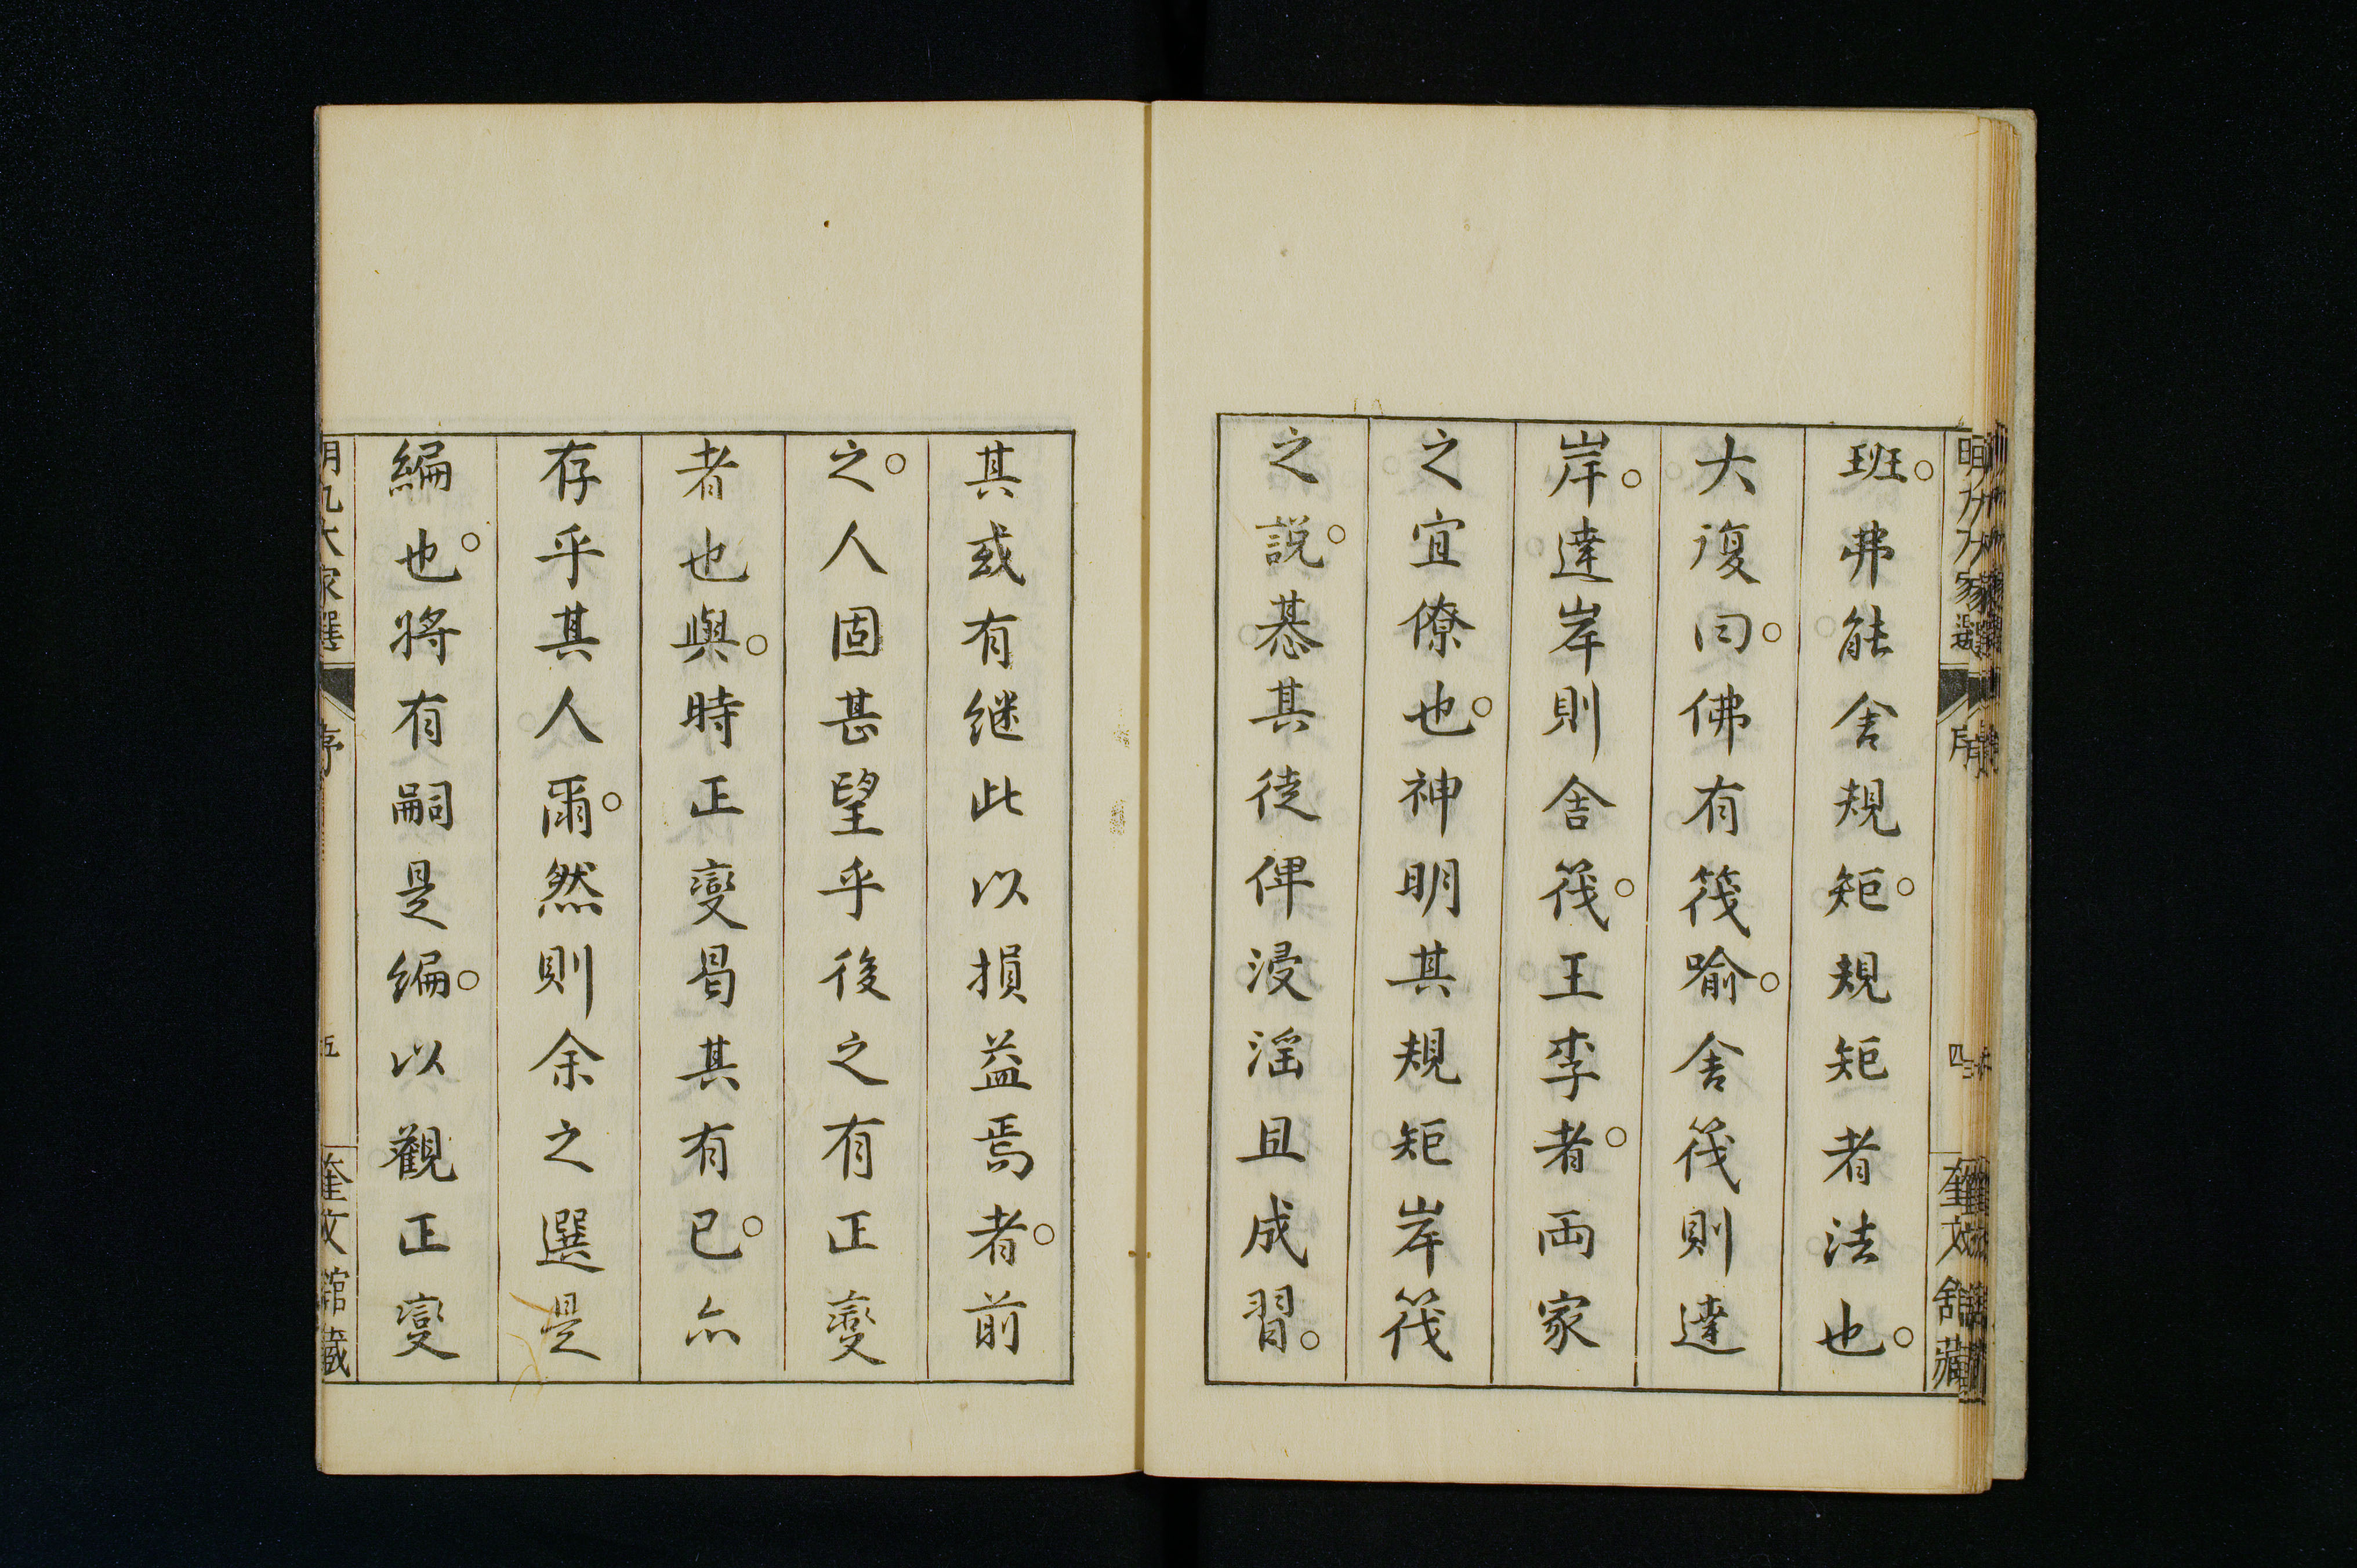 班。弗能舎規矩。規矩者法也。
大復曰。佛有筏喻。舎筏則達
岸。達岸則舎筏。王李者。両家
之宜僚也。神明其規矩岸筏
之説。惎其徒俾浸淫且成習。
其或有継此以損益焉者。前
之。人固甚望乎後之有正變
者也與。時正變曷其有已。亦
存乎其人爾。然則余之選是
編也。将有嗣是編。以觀正變
明九大家選
序
五
奎文館蔵